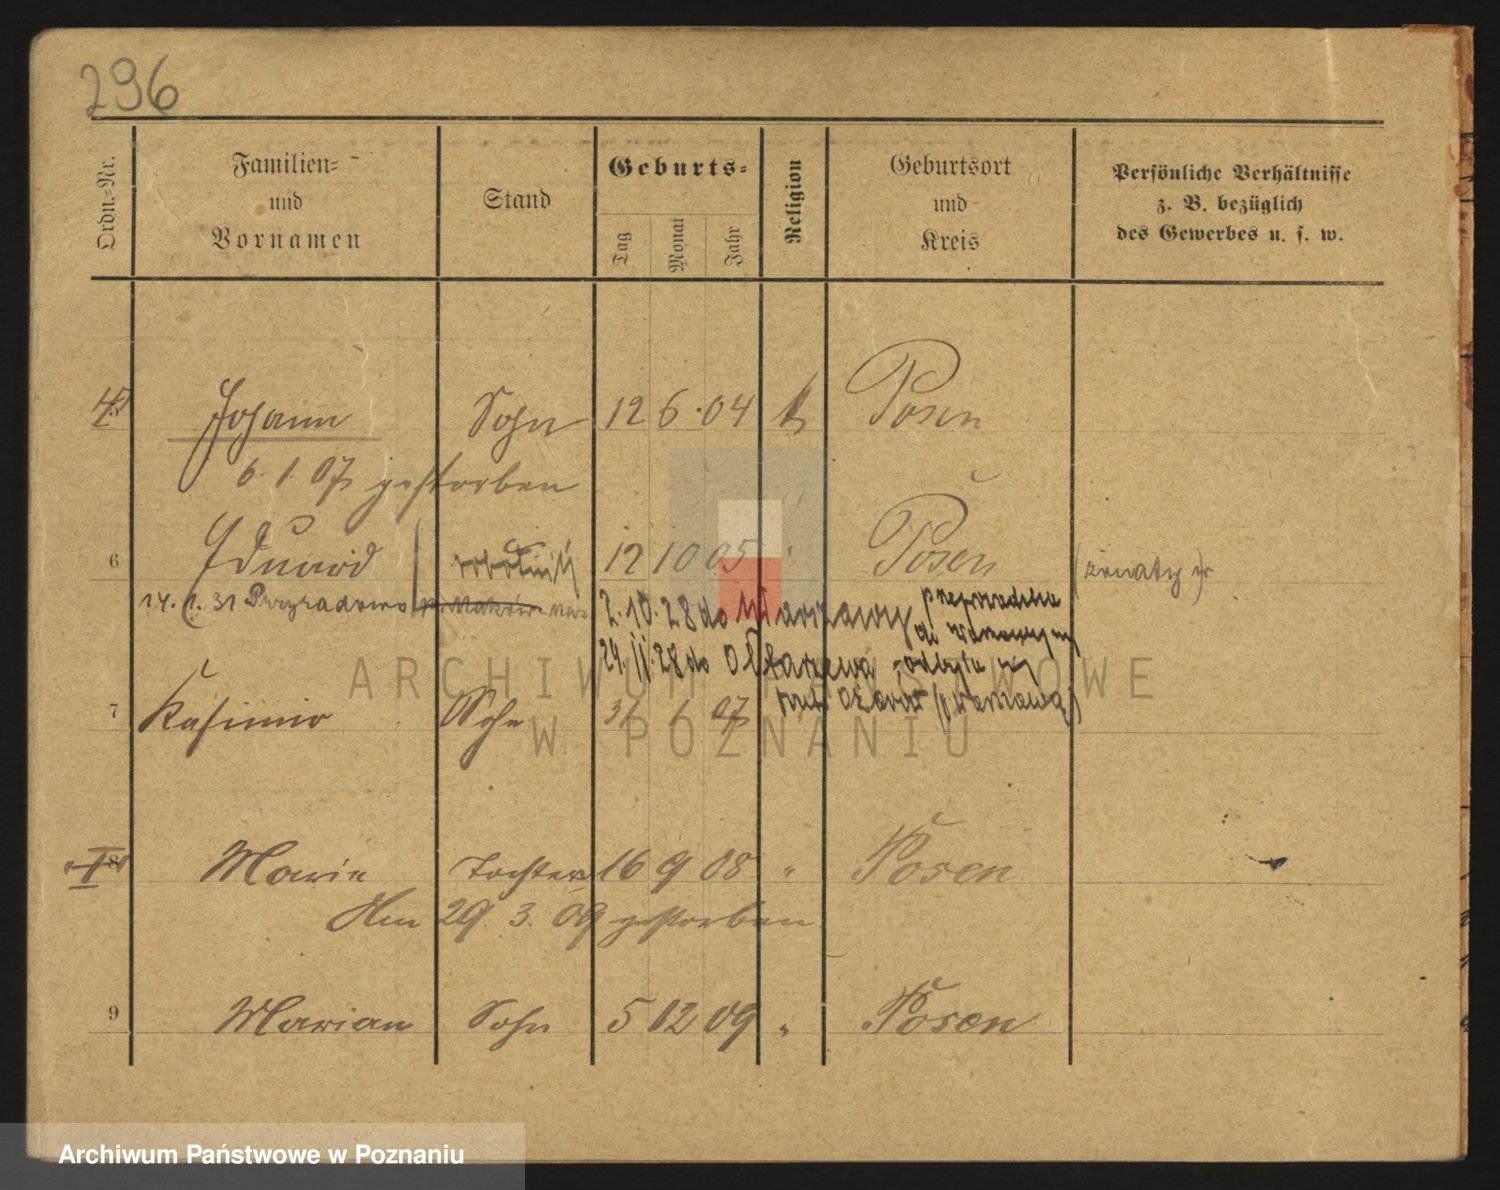 296
Ordn.-Nr.
Familien-
und
Vornamen
Stand
Geburts-
Tag Monat Jahr
Religion
Geburtsort
und
Kreis
Persönliche Verhältnisse
z. B. bezüglich
des Gewerbes u. s. w.
5 Johann Sohn 12 6 04 k Posen
6. 1. 07 gestorben
6 Eduard robotnik 12 10 05 " Posen żonaty
14. 1. 31 2. 10. 28 do Warszawy
29. 11. 28 do Ołtarzewa
7 Kasimir Sohn 31 1 07 Ożarów
8 Marie Tochter 16 9 08 " Posen
Am 29 3. 09 gestorben
9 Marian Sohn 5 12 09 " Posen
ARCHIWUM PAŃSTWOWE
W POZNANIU
Archiwum Państwowe w Poznaniu